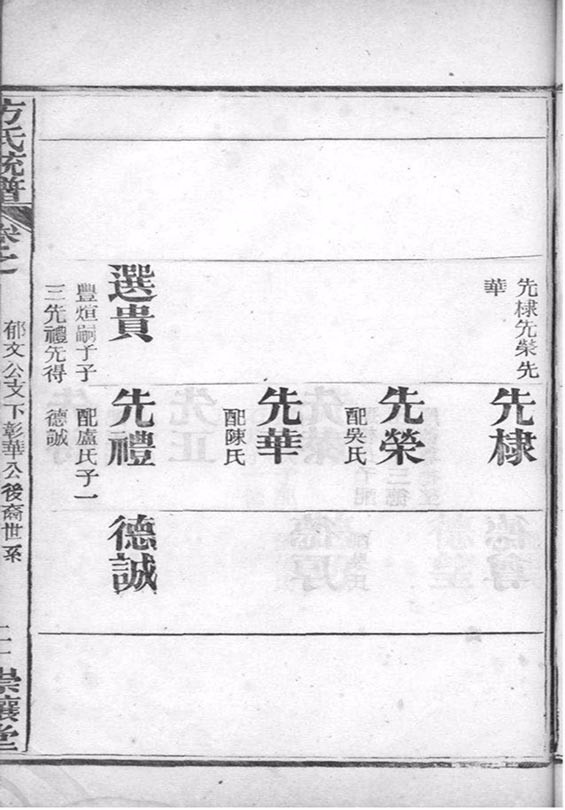 先棣先榮先
華
先棣
先榮
配吳氏
先華
配陳氏
選貴
豐烜嗣子子
三先禮先得
先禮
配盧氏子一
德誠
德誠
方氏統譜
卷之
郁文公支下彰華公後裔世系
崇讓堂